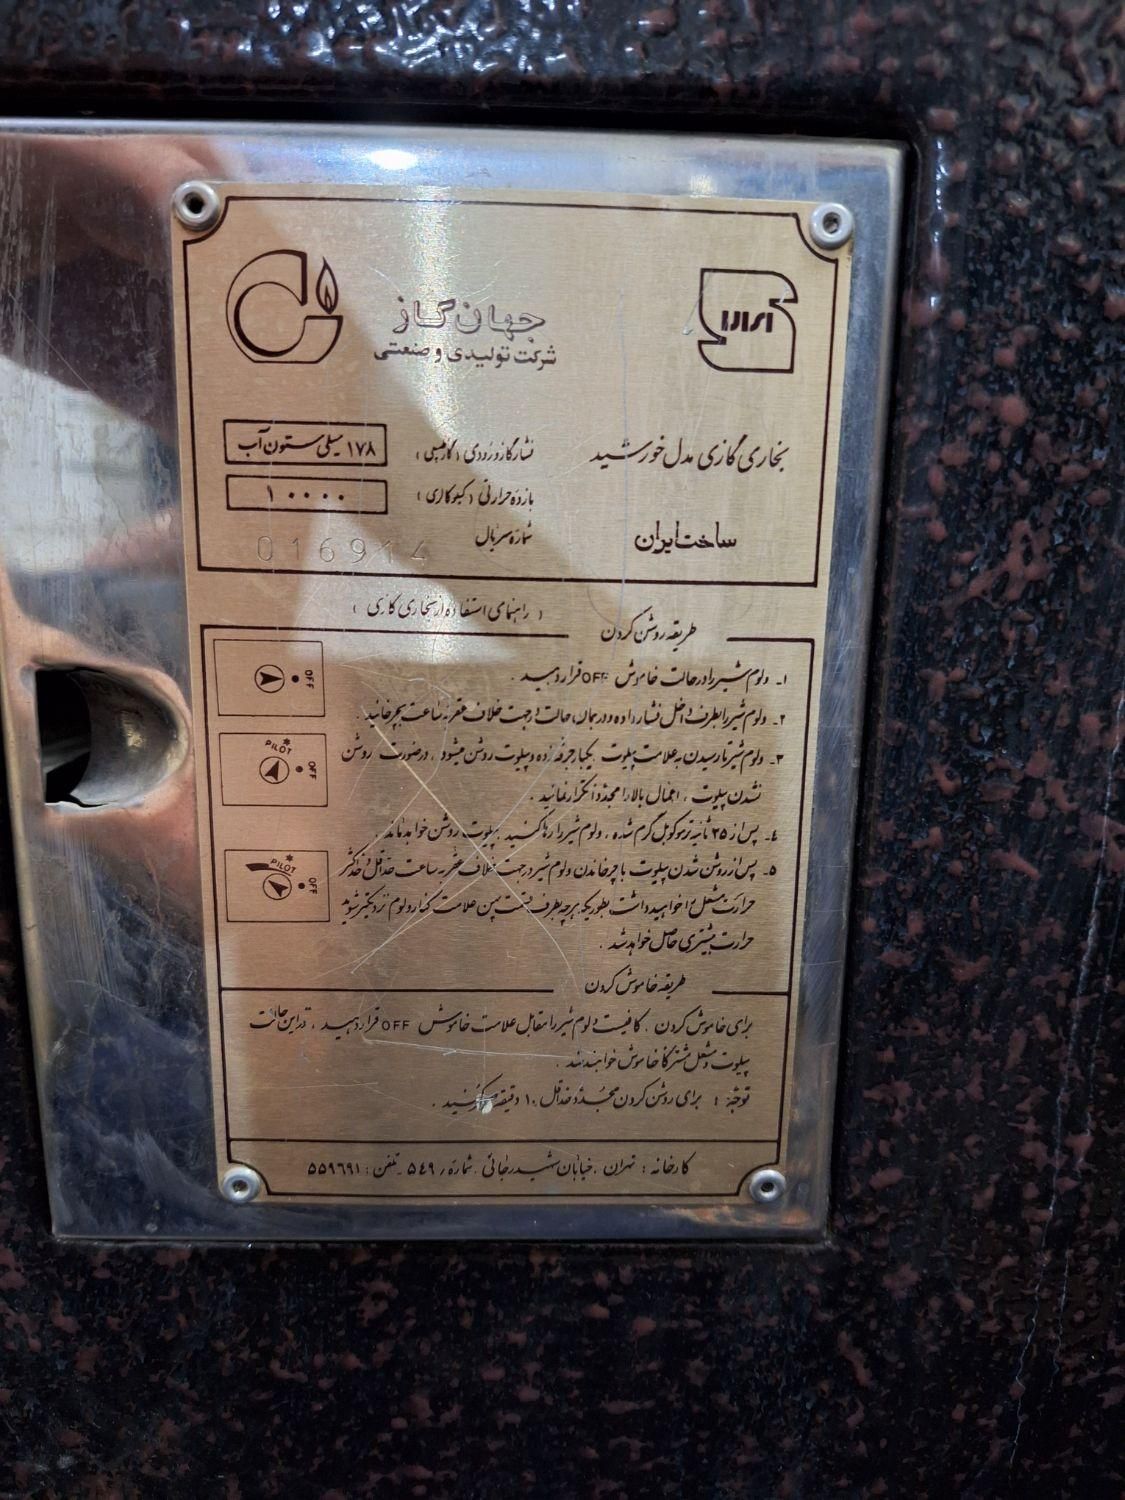 جهان گاز
شرکت تولیدی و صنعتی
بخاری گازی مدل خورشید
ساخت ایران
فشار گاز ورودی (گاز طبیعی)
۱۷۸ میلی ستون آب
بازده حرارتی (کیلو کالری)
۱۰۰۰۰
شماره سریال
016914
(راهنمای استفاده از بخاری گازی)
طریقه روشن کردن
۱ـ ولوم شیر را در حالت خاموش OFF قرار دهید .
OFF
۲ـ ولوم شیر را بطرف داخل فشار داده و در همان حالت در جهت خلاف عقربه ساعت بچرخانید .
۳ـ ولوم شیر تا رسیدن به علامت پیلوت یکبار جرقه زده و پیلوت روشن میشود ، در صورت روشن
نشدن پیلوت ، اعمال بالا را مجدداً تکرار نمائید .
PILOT
OFF
٤ـ پس از ۲۵ ثانیه ترموکوپل گرم شده ، ولوم شیر را رها کنید . پیلوت روشن خواهد ماند .
۵ـ پس از روشن شدن پیلوت با چرخاندن ولوم شیر در جهت خلاف عقربه ساعت حداقل و حداکثر
حرارت مشعل را خواهید داشت بطوریکه هر چه بطرف قسمت پهن علامت کنار ولوم نزدیکتر شوید
حرارت بیشتری حاصل خواهد شد .
PILOT
OFF
طریقه خاموش کردن
برای خاموش کردن ، کافیست ولوم شیر را مقابل علامت خاموش OFF قرار دهید ، در این حالت
پیلوت و مشعل مشترکا خاموش خواهند شد .
توجه : برای روشن کردن مجدد حداقل ۱۰ دقیقه صبر کنید .
کارخانه : تهران ، خیابان شهید رجائی ، شماره ۵٤۹ ـ تلفن : ۵۵۹٦۹۱